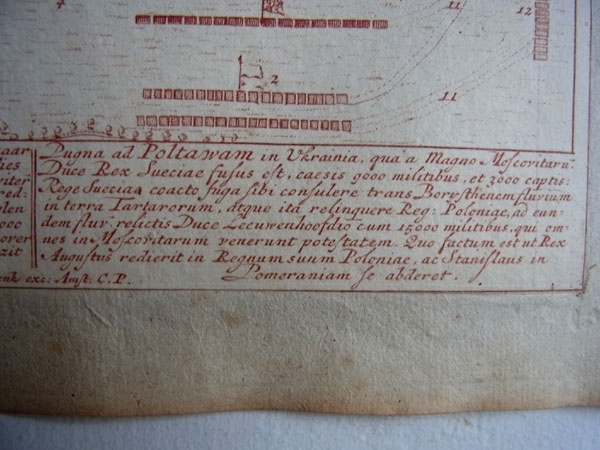 4
11
12
2
11
aar
lies
viter
ed:
olen
000
orer
zit
Pugna ad Poltawam in Vkrainia, qua a Magno Moscovitaru
Duce Rex Sueciae fusus est, caesis 9000 militibus, et 3000 captis:
Rege Sueciae coacto fuga sibi consulere trans Borysthenem fluvium
in terra Tartarorum, atque ita relinquere Reg: Poloniae, ad eun-
dem fluv: relictis Duce Leeuwenhoofdio cum 15000 militibus, qui om-
nes in Moscovitarum venerunt potestatem. Quo factum est ut Rex
Augustus redierit in Regnum suum Poloniae, ac Stanislaus in
Pomeraniam se abderet.
enk exc: Amst: C.P.